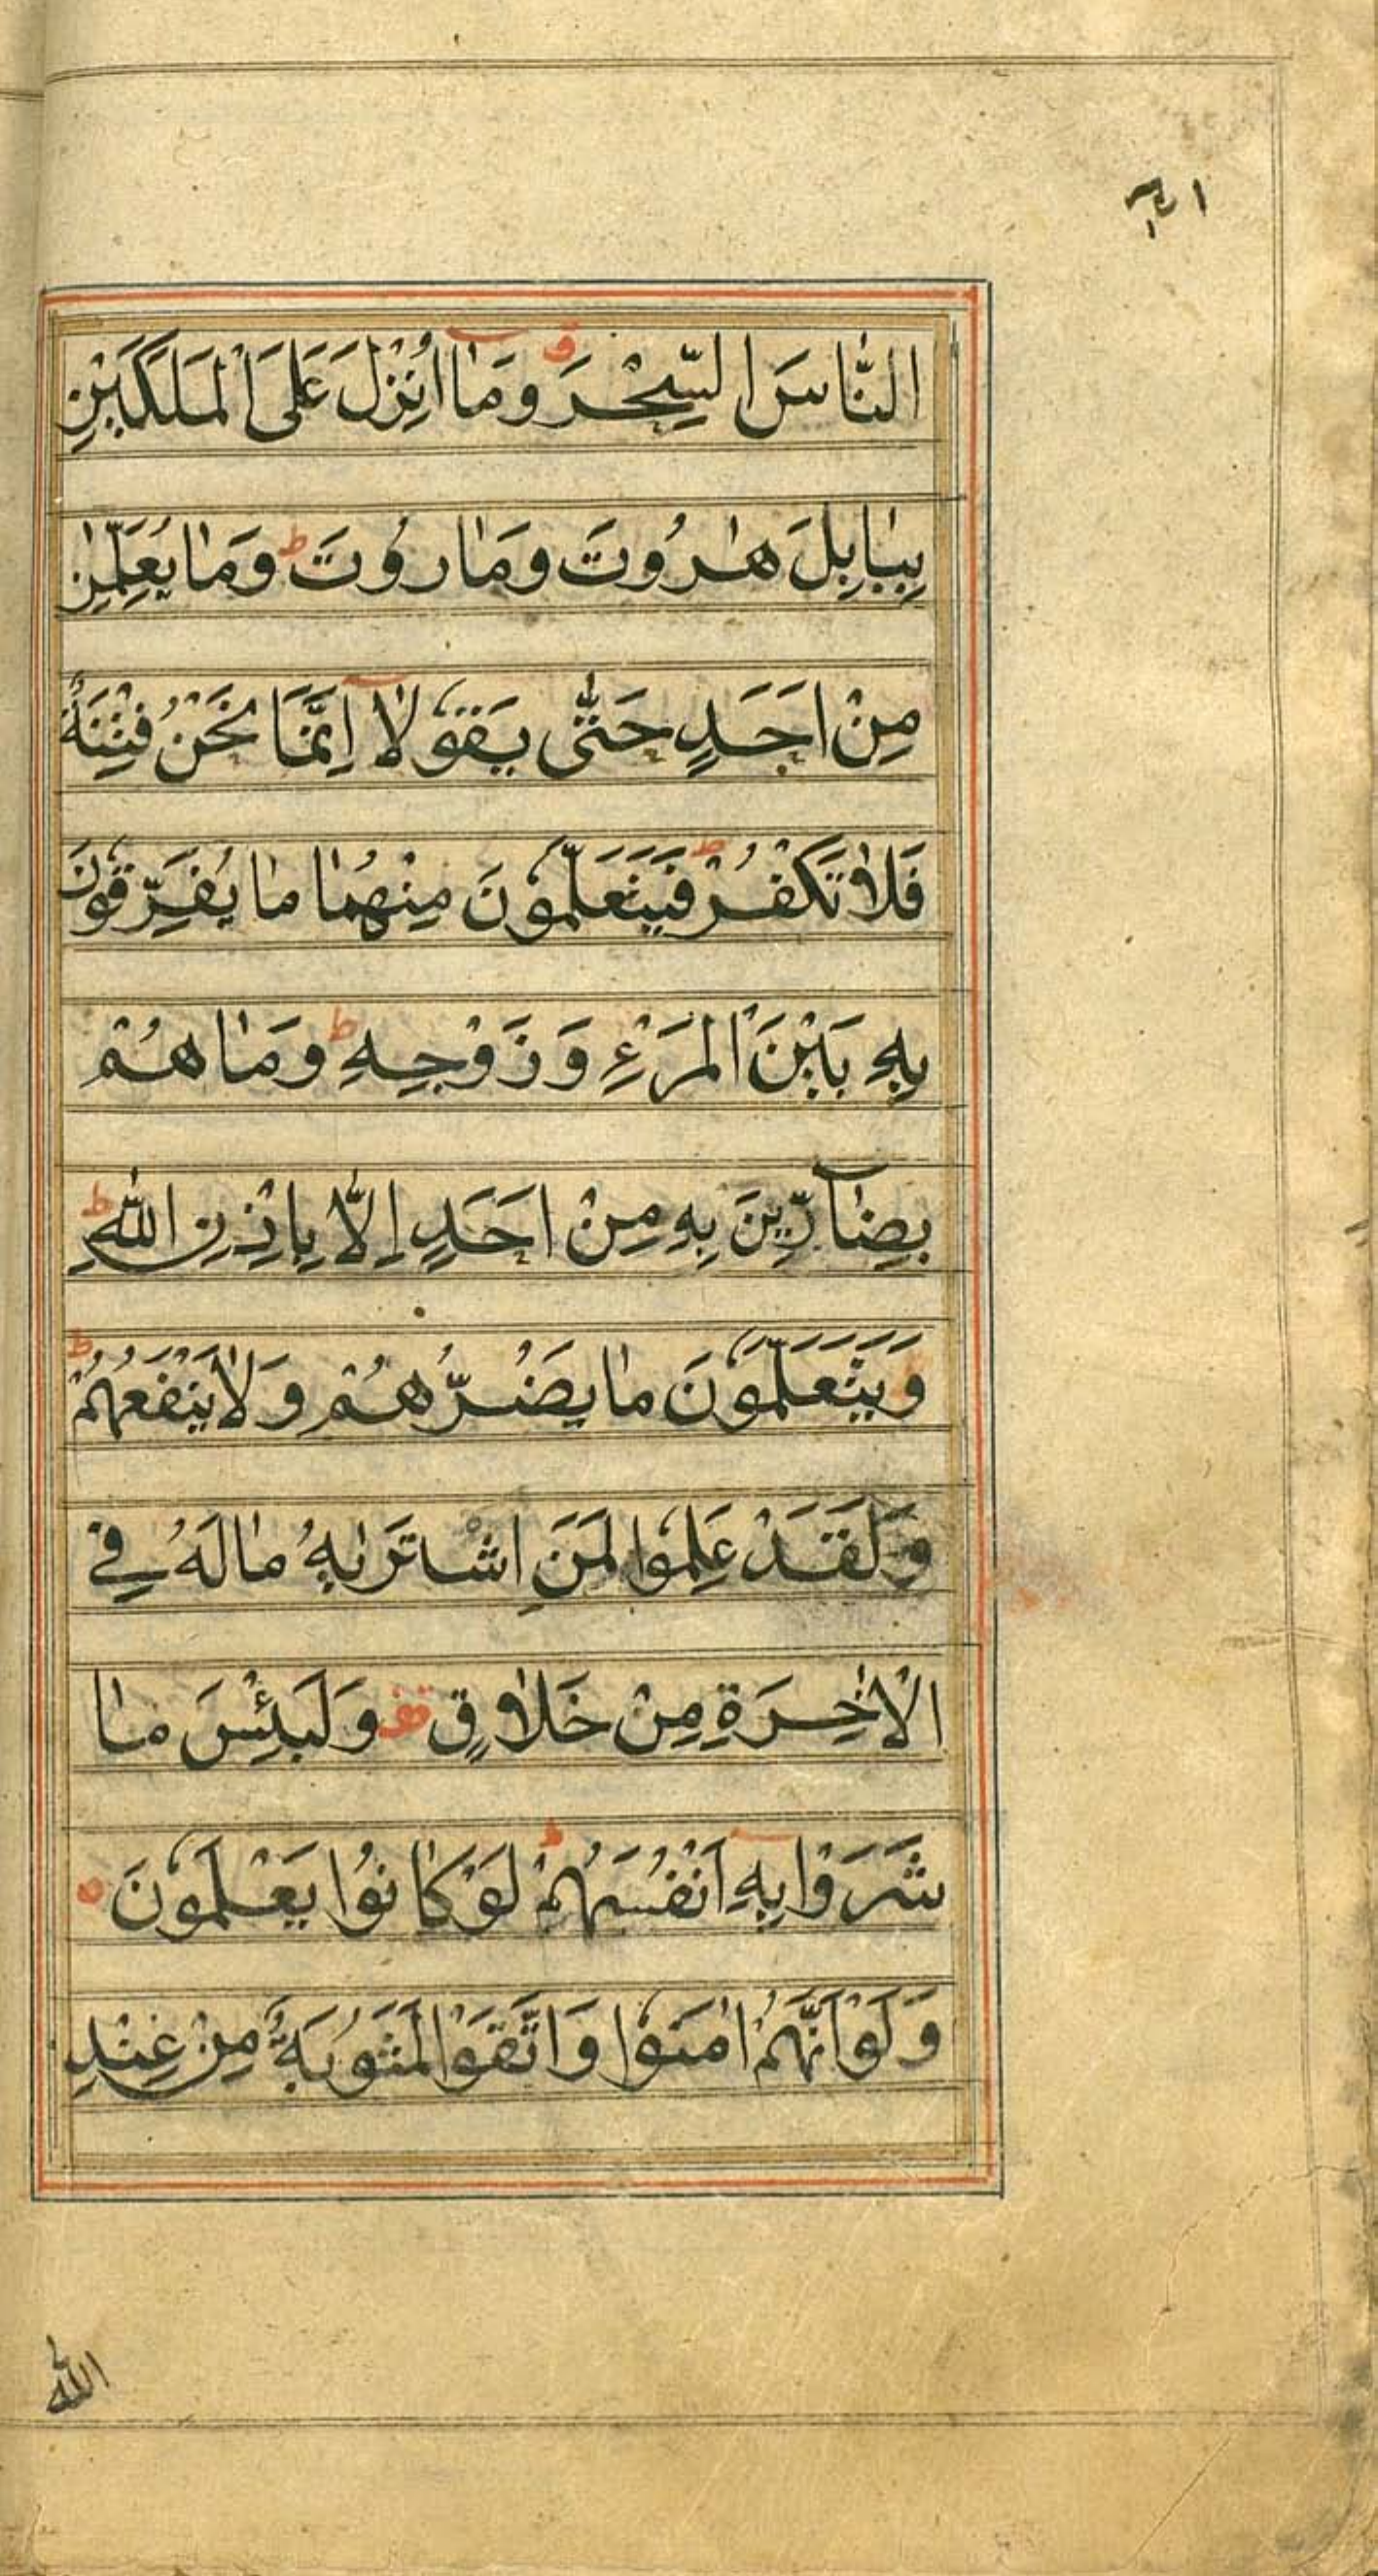 النَّاسَ السِّحْرَ ق وَمَآ اُنْزِلَ عَلَى الْمَلَكَيْنِ
بِبَابِلَ هٰرُوتَ وَمَارُوتَ ط وَمَا يُعَلِّمٰنِ
مِنْ اَحَدٍ حَتّٰى يَقُوْلَآ اِنَّمَا نَحْنُ فِتْنَةٌ
فَلَا تَكْفُرْ ط فَيَتَعَلَّمُوْنَ مِنْهُمَا مَا يُفَرِّقُوْنَ
بِهٖ بَيْنَ الْمَرْءِ وَزَوْجِهٖ ط وَمَا هُمْ
بِضَآرِّيْنَ بِهٖ مِنْ اَحَدٍ اِلَّا بِاِذْنِ اللّٰهِ ط
وَيَتَعَلَّمُوْنَ مَا يَضُرُّهُمْ وَلَا يَنْفَعُهُمْ ط
وَلَقَدْ عَلِمُوا لَمَنِ اشْتَرٰىهُ مَا لَهُ فِي
الْاٰخِرَةِ مِنْ خَلَاقٍ قف وَلَبِئْسَ مَا
شَرَوْا بِهٖٓ اَنْفُسَهُمْ ط لَوْ كَانُوْا يَعْلَمُوْنَ ه
وَلَوْ اَنَّهُمْ اٰمَنُوْا وَاتَّقَوْا لَمَثُوْبَةٌ مِنْ عِنْدِ
اللّٰه